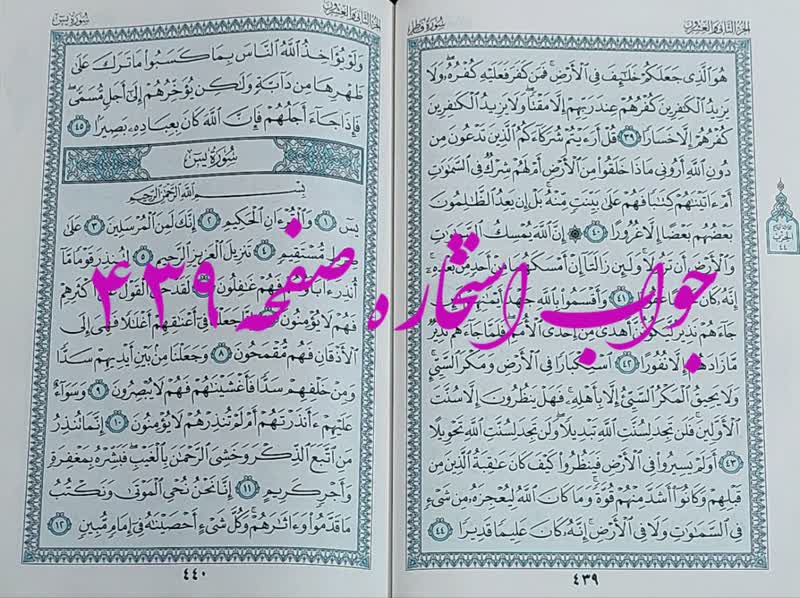 الجزء الثاني والعشرون
سورة فاطر
هُوَ الَّذِي جَعَلَكُمْ خَلَٰٓئِفَ فِي الْأَرْضِ ۚ فَمَن كَفَرَ فَعَلَيْهِ كُفْرُهُۥ ۖ وَلَا
يَزِيدُ الْكَٰفِرِينَ كُفْرُهُمْ عِندَ رَبِّهِمْ إِلَّا مَقْتًا ۖ وَلَا يَزِيدُ الْكَٰفِرِينَ
كُفْرُهُمْ إِلَّا خَسَارًا ٣٩ قُلْ أَرَءَيْتُمْ شُرَكَآءَكُمُ الَّذِينَ تَدْعُونَ مِن
دُونِ اللَّهِ أَرُونِي مَاذَا خَلَقُوا مِنَ الْأَرْضِ أَمْ لَهُمْ شِرْكٌ فِي السَّمَٰوَٰتِ
أَمْ ءَاتَيْنَٰهُمْ كِتَٰبًا فَهُمْ عَلَىٰ بَيِّنَتٍ مِّنْهُ ۚ بَلْ إِن يَعِدُ الظَّٰلِمُونَ
بَعْضُهُم بَعْضًا إِلَّا غُرُورًا ٤٠ ۞ إِنَّ اللَّهَ يُمْسِكُ السَّمَٰوَٰتِ
وَالْأَرْضَ أَن تَزُولَا ۚ وَلَئِن زَالَتَآ إِنْ أَمْسَكَهُمَا مِنْ أَحَدٍ مِّنۢ بَعْدِهِۦٓ ۚ
إِنَّهُۥ كَانَ حَلِيمًا غَفُورًا ٤١ وَأَقْسَمُوا بِاللَّهِ جَهْدَ أَيْمَٰنِهِمْ لَئِن
جَآءَهُمْ نَذِيرٌ لَّيَكُونُنَّ أَهْدَىٰ مِنْ إِحْدَى الْأُمَمِ ۖ فَلَمَّا جَآءَهُمْ نَذِيرٌ
مَّا زَادَهُمْ إِلَّا نُفُورًا ٤٢ اسْتِكْبَارًا فِي الْأَرْضِ وَمَكْرَ السَّيِّئِ ۚ
وَلَا يَحِيقُ الْمَكْرُ السَّيِّئُ إِلَّا بِأَهْلِهِۦ ۚ فَهَلْ يَنظُرُونَ إِلَّا سُنَّتَ
الْأَوَّلِينَ ۚ فَلَن تَجِدَ لِسُنَّتِ اللَّهِ تَبْدِيلًا ۖ وَلَن تَجِدَ لِسُنَّتِ اللَّهِ تَحْوِيلًا
٤٣ أَوَلَمْ يَسِيرُوا فِي الْأَرْضِ فَيَنظُرُوا كَيْفَ كَانَ عَٰقِبَةُ الَّذِينَ مِن
قَبْلِهِمْ وَكَانُوٓا أَشَدَّ مِنْهُمْ قُوَّةً ۚ وَمَا كَانَ اللَّهُ لِيُعْجِزَهُۥ مِن شَيْءٍ
فِي السَّمَٰوَٰتِ وَلَا فِي الْأَرْضِ ۚ إِنَّهُۥ كَانَ عَلِيمًا قَدِيرًا ٤٤
٤٣٩
الجزء الثاني والعشرون
سورة يس
وَلَوْ يُؤَاخِذُ اللَّهُ النَّاسَ بِمَا كَسَبُوا مَا تَرَكَ عَلَىٰ
ظَهْرِهَا مِن دَآبَّةٍ وَلَٰكِن يُؤَخِّرُهُمْ إِلَىٰٓ أَجَلٍ مُّسَمًّى ۖ
فَإِذَا جَآءَ أَجَلُهُمْ فَإِنَّ اللَّهَ كَانَ بِعِبَادِهِۦ بَصِيرًا ٤٥
سُورَةُ يسٓ
بِسْمِ اللَّهِ الرَّحْمَٰنِ الرَّحِيمِ
يسٓ ١ وَالْقُرْءَانِ الْحَكِيمِ ٢ إِنَّكَ لَمِنَ الْمُرْسَلِينَ ٣ عَلَىٰ
صِرَٰطٍ مُّسْتَقِيمٍ ٤ تَنزِيلَ الْعَزِيزِ الرَّحِيمِ ٥ لِتُنذِرَ قَوْمًا مَّآ
أُنذِرَ ءَابَآؤُهُمْ فَهُمْ غَٰفِلُونَ ٦ لَقَدْ حَقَّ الْقَوْلُ عَلَىٰٓ أَكْثَرِهِمْ
فَهُمْ لَا يُؤْمِنُونَ ٧ إِنَّا جَعَلْنَا فِيٓ أَعْنَٰقِهِمْ أَغْلَٰلًا فَهِيَ إِلَى
الْأَذْقَانِ فَهُم مُّقْمَحُونَ ٨ وَجَعَلْنَا مِنۢ بَيْنِ أَيْدِيهِمْ سَدًّا
وَمِنْ خَلْفِهِمْ سَدًّا فَأَغْشَيْنَٰهُمْ فَهُمْ لَا يُبْصِرُونَ ٩ وَسَوَآءٌ
عَلَيْهِمْ ءَأَنذَرْتَهُمْ أَمْ لَمْ تُنذِرْهُمْ لَا يُؤْمِنُونَ ١٠ إِنَّمَا تُنذِرُ
مَنِ اتَّبَعَ الذِّكْرَ وَخَشِيَ الرَّحْمَٰنَ بِالْغَيْبِ ۖ فَبَشِّرْهُ بِمَغْفِرَةٍ
وَأَجْرٍ كَرِيمٍ ١١ إِنَّا نَحْنُ نُحْيِ الْمَوْتَىٰ وَنَكْتُبُ
مَا قَدَّمُوا وَءَاثَٰرَهُمْ ۚ وَكُلَّ شَيْءٍ أَحْصَيْنَٰهُ فِيٓ إِمَامٍ مُّبِينٍ ١٢
٤٤٠
جواب استخاره صفحه ۴۳۹